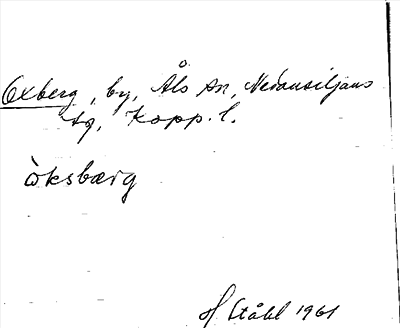 Oxberg, by, Åls sn, Nedansiljans
tg, Kopp. l.
òksbærg
H Ståhl 1961